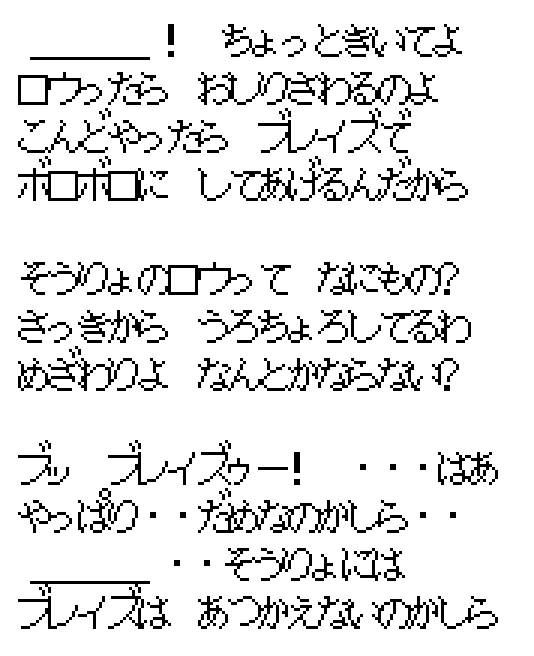 ______! ちょっときいてよ
ロウったら おしりさわるのよ
こんどやったら ブレイズで
ボロボロに してあげるんだから
そうりょのロウって なにもの?
さっきから うろちょろしてるわ
めざわりよ なんとかならない?
ブッ ブレイズゥー! ・・・はあ
やっぱり・・だめなのかしら・・
______・・そうりょには
ブレイズは あつかえないのかしら